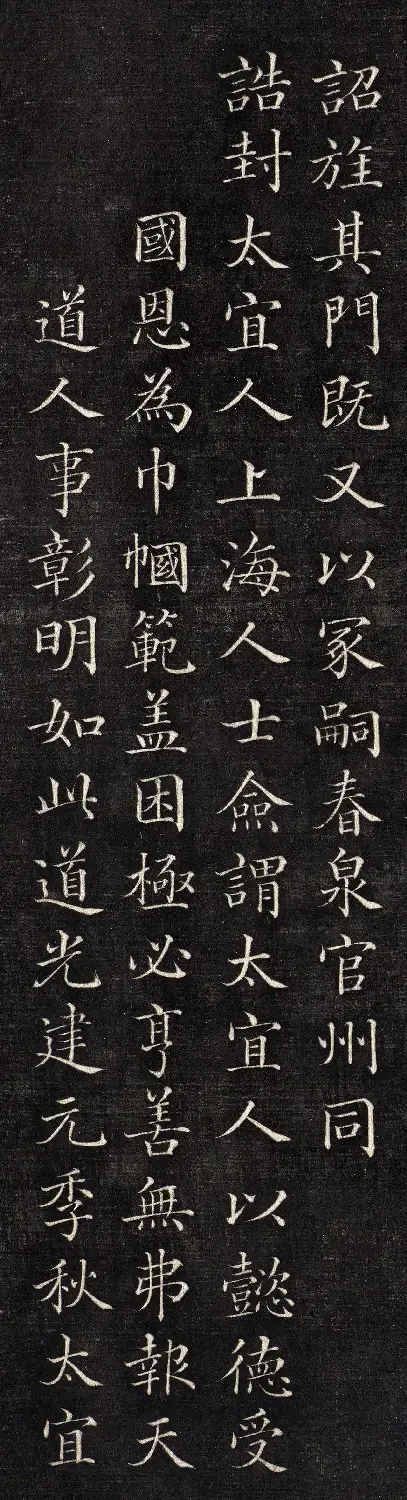 詔旌其門既又以冢嗣春泉官州同
誥封太宜人上海人士僉謂太宜人以懿德受
國恩為巾幗範盖困極必亨善無弗報天
道人事彰明如此道光建元季秋太宜